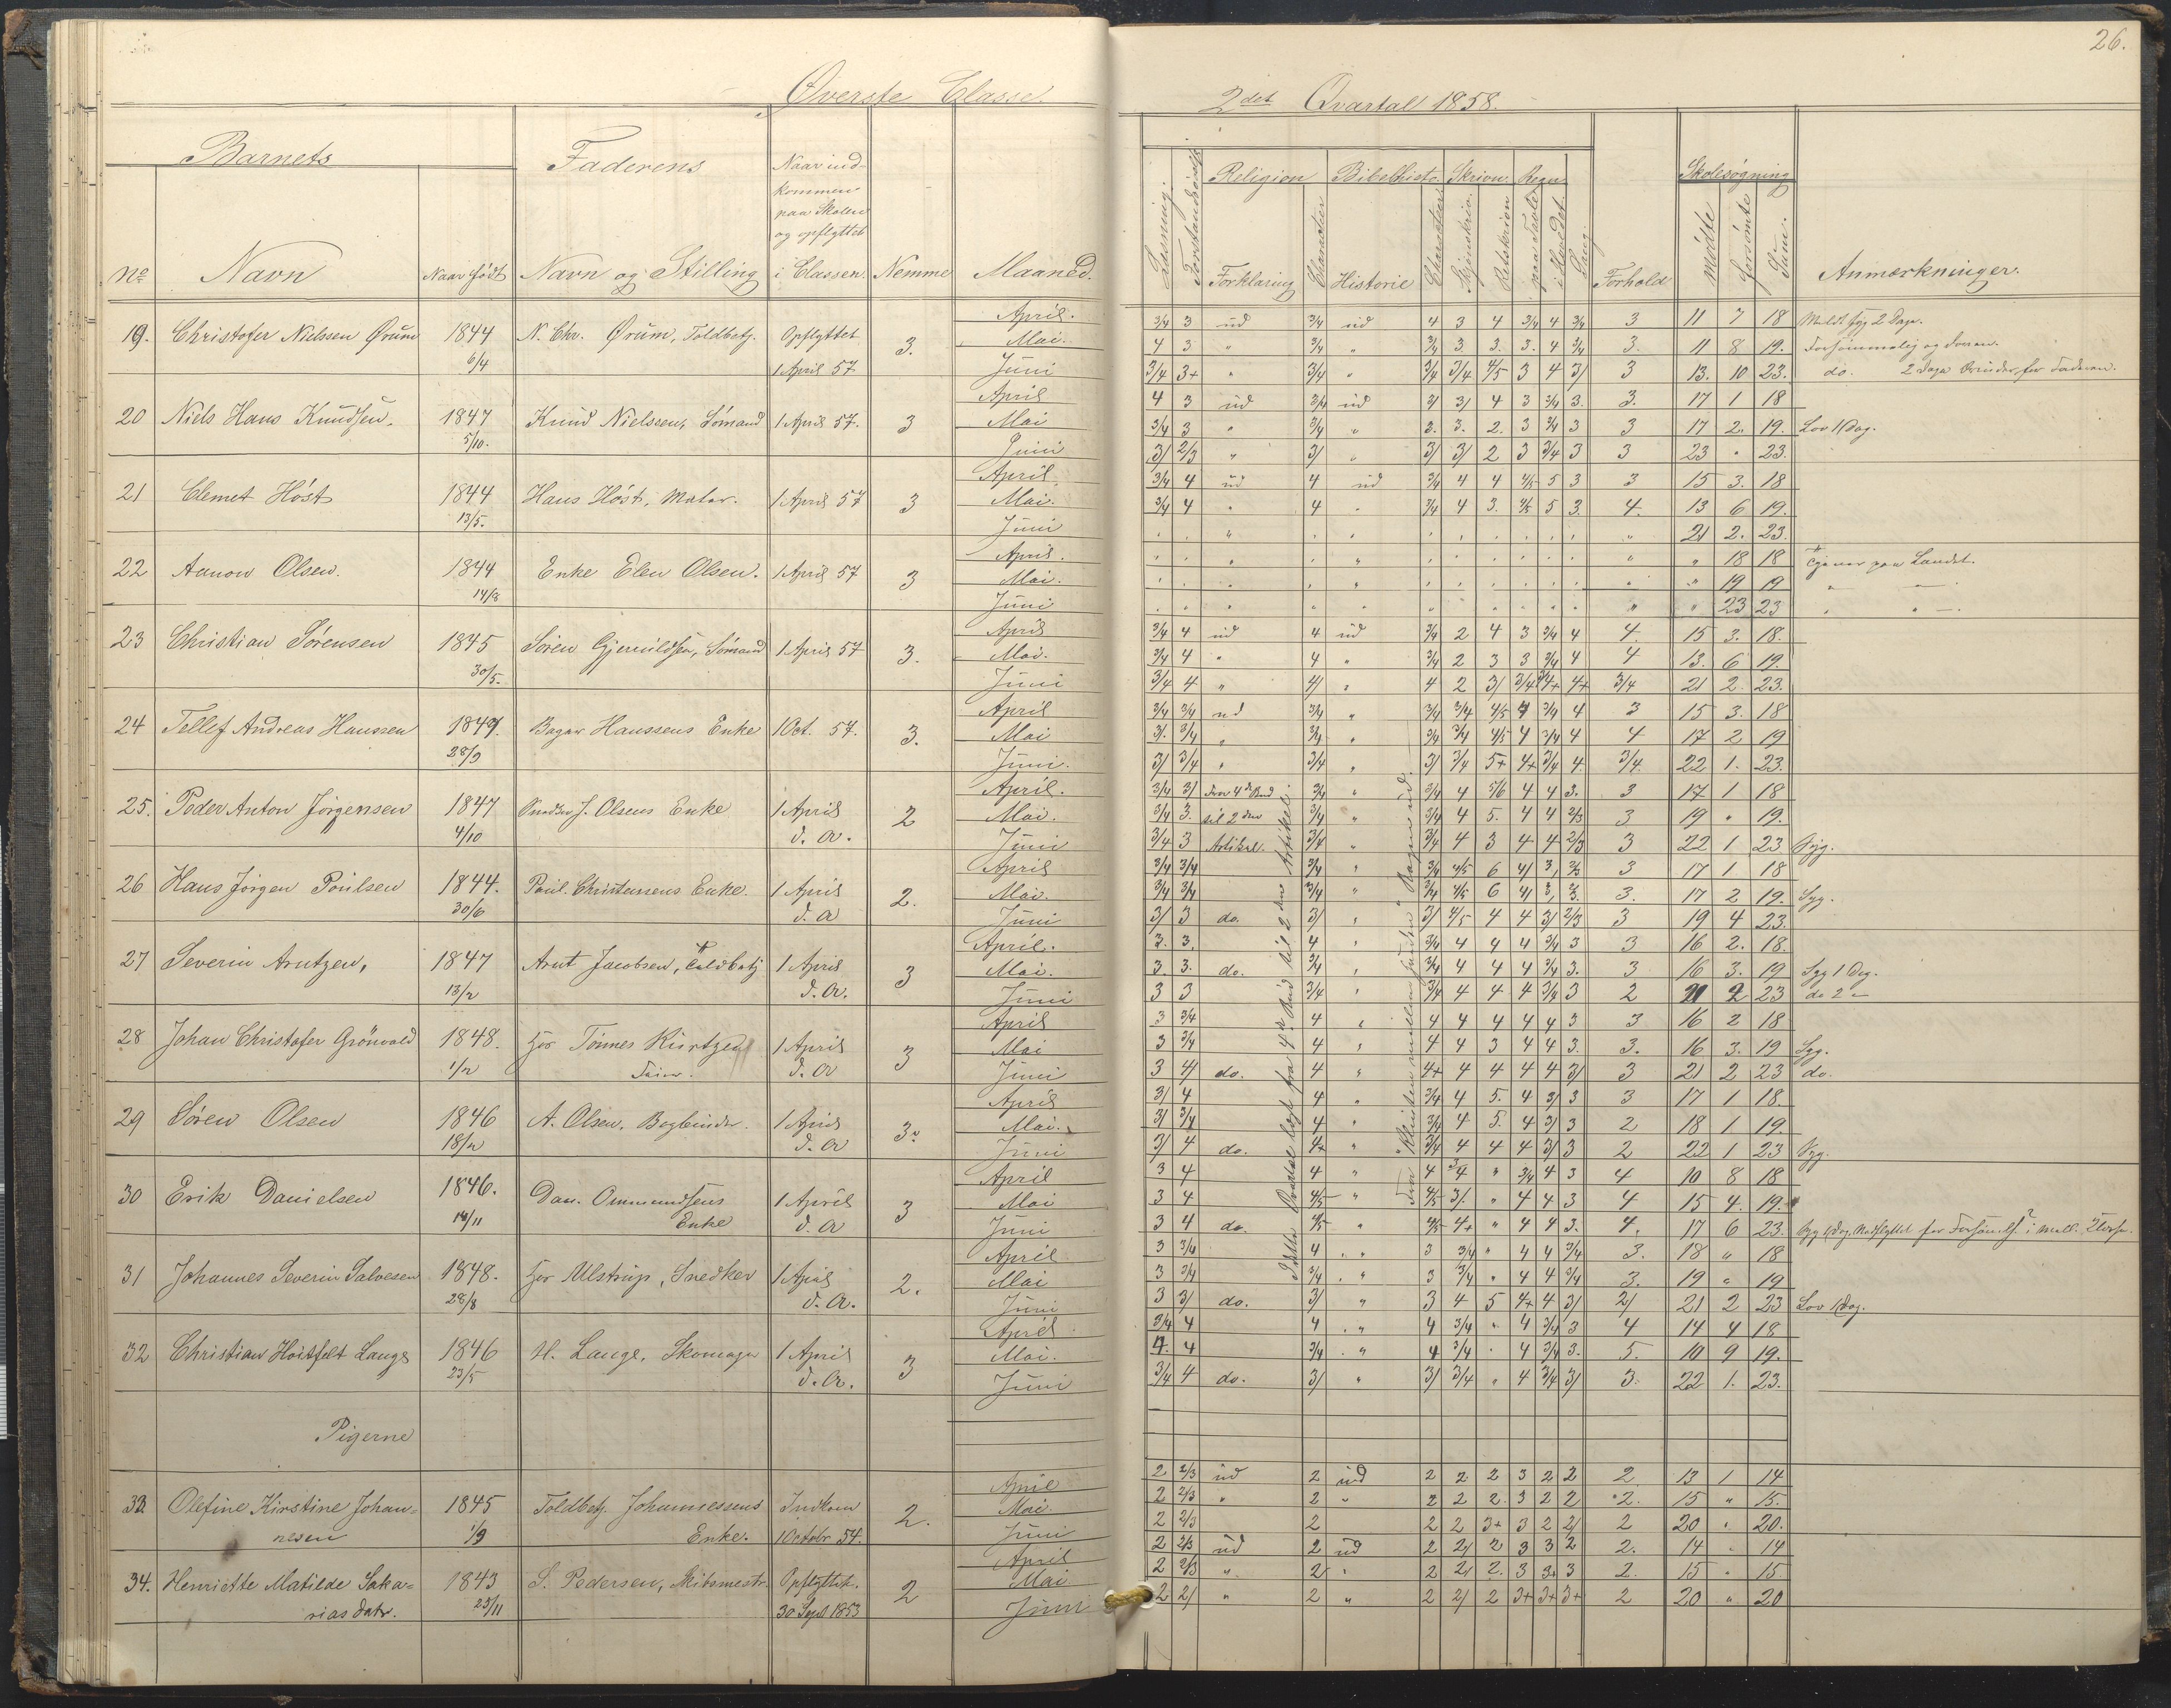 Øverste Classe.
Barnets
Faderens
Naar ind-
kommen
paa Skolen
og opflyttet
i Classen.
No
Navn
Naar født
Navn og Stilling
Nemme
Maaned.
19. Christofer Nielssen Ørum 1844 6/4 N. Chr. Ørum, Toldbetj. Opflyttet 1 April 57 3. April. Mai. Juni
20 Niels Hans Knudsen. 1847 5/10. Knud Nielssen, Sømand 1 April 57. 3 April Mai Juni
21 Clemet Høst 1844 13/5. Hans Høst, Maler. 1 April 57 3 April Mai. Juni
22 Aanon Olsen. 1844 14/8 Enke Elen Olsen. 1 April 57 3 April. Mai. Juni
23 Christian Sørensen 1845 30/5. Søren Gjeruldsen, Sømand 1 April 57 3. April Mai. Juni
24 Tellef Andreas Hanssen 1847. 28/9 Bager Hanssens Enke 1 Oct. 57. 3. April Mai Juni.
25. Peder Anton Jörgensen 1847 4/10 J. Olsens Enke 1 April d. A. 2 April. Mai. Juni
26 Hans Jörgen Poulsen 1844. 30/6 Poul. Christensens Enke. 1 April d. A 2. April Mai. Juni
27 Severin Arntzen, 1847 13/2 Arnt Jacobsen, Toldbetj 1 April d. A. 3 April. Mai. Juni
28 Johan Christofer Grönvold 1848. 1/2 hos Tönnes Kirtzen 1 April d. A 3 April Mai Juni
29 Søren Olsen 1846 18/2 A. Olsen. Bogbinder. 1 April d. A 3. April Mai. Juni
30 Erik Danielsen 1846. 14/11 Dan. Ommundsens Enke 1 April d. A 3 April Mai Juni
31 Johannes Severin Salvesen 1848. 28/8 hos Ulstrup, Snedker 1 April d. A. 2. April Mai Juni
32 Christian Hoitfelt Lange 1846 23/5 H. Lange, Skomager 1 April d. A. 3 April Mai. Juni
Pigerne
33. Olefine Kirstine Johan=nesen 1845 1/9 Toldbetj. Johannessens Enke. Indkom 1 Octobr. 54. 2. April Mai. Juni
34. Henriette Matilde Saka=rias datr. 1843 25/11 S. Pedersen, Skibsmestr. Opflyttet. 30 Sept 1853 2 April Mai Juni
26.
2det Qvartall 1858.
Læsning.
Religion
Forklaring
Character
Bibelhist.
Historie
Character
Skrivn.
Retskrivn
Regn.
paa Tavle
i Hovedet.
Sang.
Forhold
Skolesøgning
Mödte
forsömte
Sum.
Anmærkninger.
3/4 3 ud 3/4 ud 4 3 4 3/4 4 3/4 3 11 7 18 Meldt syg 2 Dage.
4 3 " 3/4 " 3/4 3. 3. 3. 4 3/4 3. 11 8 19. Forsømmelig og doven.
3/4 3+ " 3/4 " 3/4 3/4 4/5 3 4 3/ 3 13. 10 23. do. 2 Dage Ærinder for Faderen.
4 3 ud 3/4 ud 3/ 3/ 4 3 3/4 3. 3. 17 1 18
3/4 3 " 3/4 " 3. 3. 2. 3 3/4 3 3 17 2. 19. Lov 1 Dag.
3/ 2/3 " 3/ " 3/ 3/ 2 3 3/4 3 3 23 " 23.
3/4 4 ud 4 ud 3/4 4 4 4/5 5 3 3 15 3. 18
3/4 4 " 4 " 3/4 4 3. 4/5 5 3. 4. 13 6 19.
21 2. 23.
" 18 18 Er paa Landet.
" 19 19
" 23 23
3/4 4 ud 4 ud 3/4 2 4 3 3/4 4 4. 15 3. 18.
3/4 4 " 4 " 3/4 2 3 3 3/4 4 4 13. 6 19.
3/4 4 " 4/ " 4 2 3/ 3/4 3/4+ 4+ 3/4 21 2. 23.
3/4 3/4 ud 3/4 " 3/4 3/4 4/5 4 3/4 4 3 15 3. 18
3/. 3/4 " 3/4 " 3/4 3/4 4/5 4 3/4 4 4 17 2 19
3/ 3/4 " 3/4 " 3/ 3/4 5+ 4+ 3/4 4. 3/4. 22 1. 23.
3/4 3/ fra 4de Bud 3/4 " 3/4 4 5/6 4 4 3. 3 17 1 18
3/4 3. til 2den 3/4 " 3/4 4 5. 4 4 2/3 3 19 " 19.
3/4 3 Artikel. 3/4 " 3/4 4 3 4 4 2/3 3 22 1 23 Syg.
3/4 3/4 3/4 " 3/4 4/5 6 4/ 3, 2/3 3 17 1 18
3/4 3/4 3/4 " 3/4 4/5 6 4/ 3, 2/3. 3. 17 2 19. Syg.
3/ 3 do. 3/ " 3/ 4/5 4 4 3/ 2/3 3 19 4 23.
3. 3. 4 " 3/4 4 4 4 3/4 3 3 16 2. 18
3. 3. do. 3/4 " 3/4 4 4 4 3/4 3. 3 16 3. 19 Syg 1 Dag.
3 3 3/4 " 3/4 4 4 4 3/4 3 2 21 2 23 do 2 -
3 3/4 4 " 4 4 4 4 4 3 3 16 2 18
3 3/4 4 " 4 4 3 4 4 3. 3. 16 3. 19 Syg.
3 4/ do. 4 " 4+ 4 4 4 4 3/ 3 21 2 23 do.
3/ 4 4 " 3/4 4 5. 4 3/ 3 3 17 1 18
3/ 3/4 4 " 3/4 4 5. 4 3/ 3 2 18 1 19.
3/ 4 do. 4+ " 3/4 4 4 4 3/ 3 2 22 1 23 Syg.
3 4 4 " 4 3/4 " 3/4 4 3 4 10 8 18
3 4 4/5 " 4/5 3/. " 4 4 3 4 15 4. 19.
3 4 do. 4/5 " 4/5 4+ " 4 4 3. 4. 17 6 23. Syg 1 Dag,
3 3/4 4 " 3 3/4 " 4 4 3/4 3. 18 " 18
3 3/4 3/4 " 3 3/4 " 4 4 3/4 3. 19 " 19
3 3/ do. 3/ " 3 4 5 4+ 4 3/ 2/ 21 2 23 Lov 1 Dag.
3/4 4 4 " 4 3/4 " 4 3/4 3 4 14 4 18
4. 4 3/4 " 4 3/4 " 4 3/4 3. 5. 10 9 19.
3/4 4 do. 3/ " 3/ 3/4 " 4 3/4 3/ 3. 22 1. 23.
2 2/3 ud 2 ud 2 2 2 3 2 2 2 13 1 14
2 2/3 " 2 " 2 2 2. 3 2 2 2. 15 " 15.
2 2/3 2 2 2 3+ 3 2 2/ 2 20 " 20.
2 2/3 ud 2 ud 2 2/ 2 3 3 2 2. 14 " 14
2 2/3 " 2 " 2 2/ 2. 3 3+ 3 2. 15 " 15.
2 2/ " 2 " 2 2/ 2 3+ 3+ 3+ 2 20 " 20